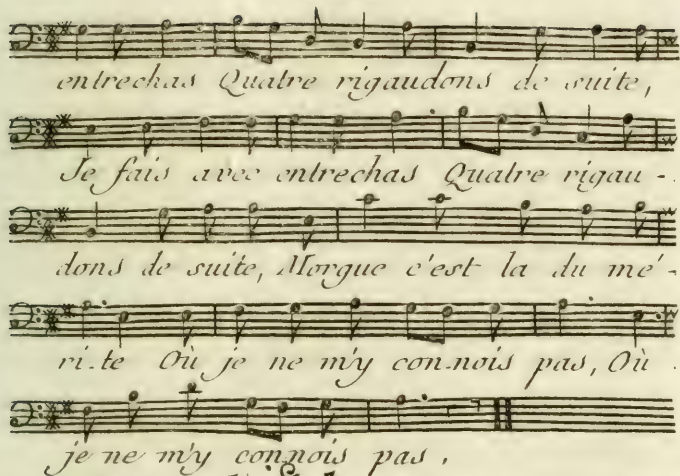 entrechas Quatre rigaudons de suite,
Je fais avec entrechas Quatre rigau-
dons de suite, Morgue c'est la du mé-
ri-te Où je ne m'y con-nois pas, Où
je ne m'y connois pas.